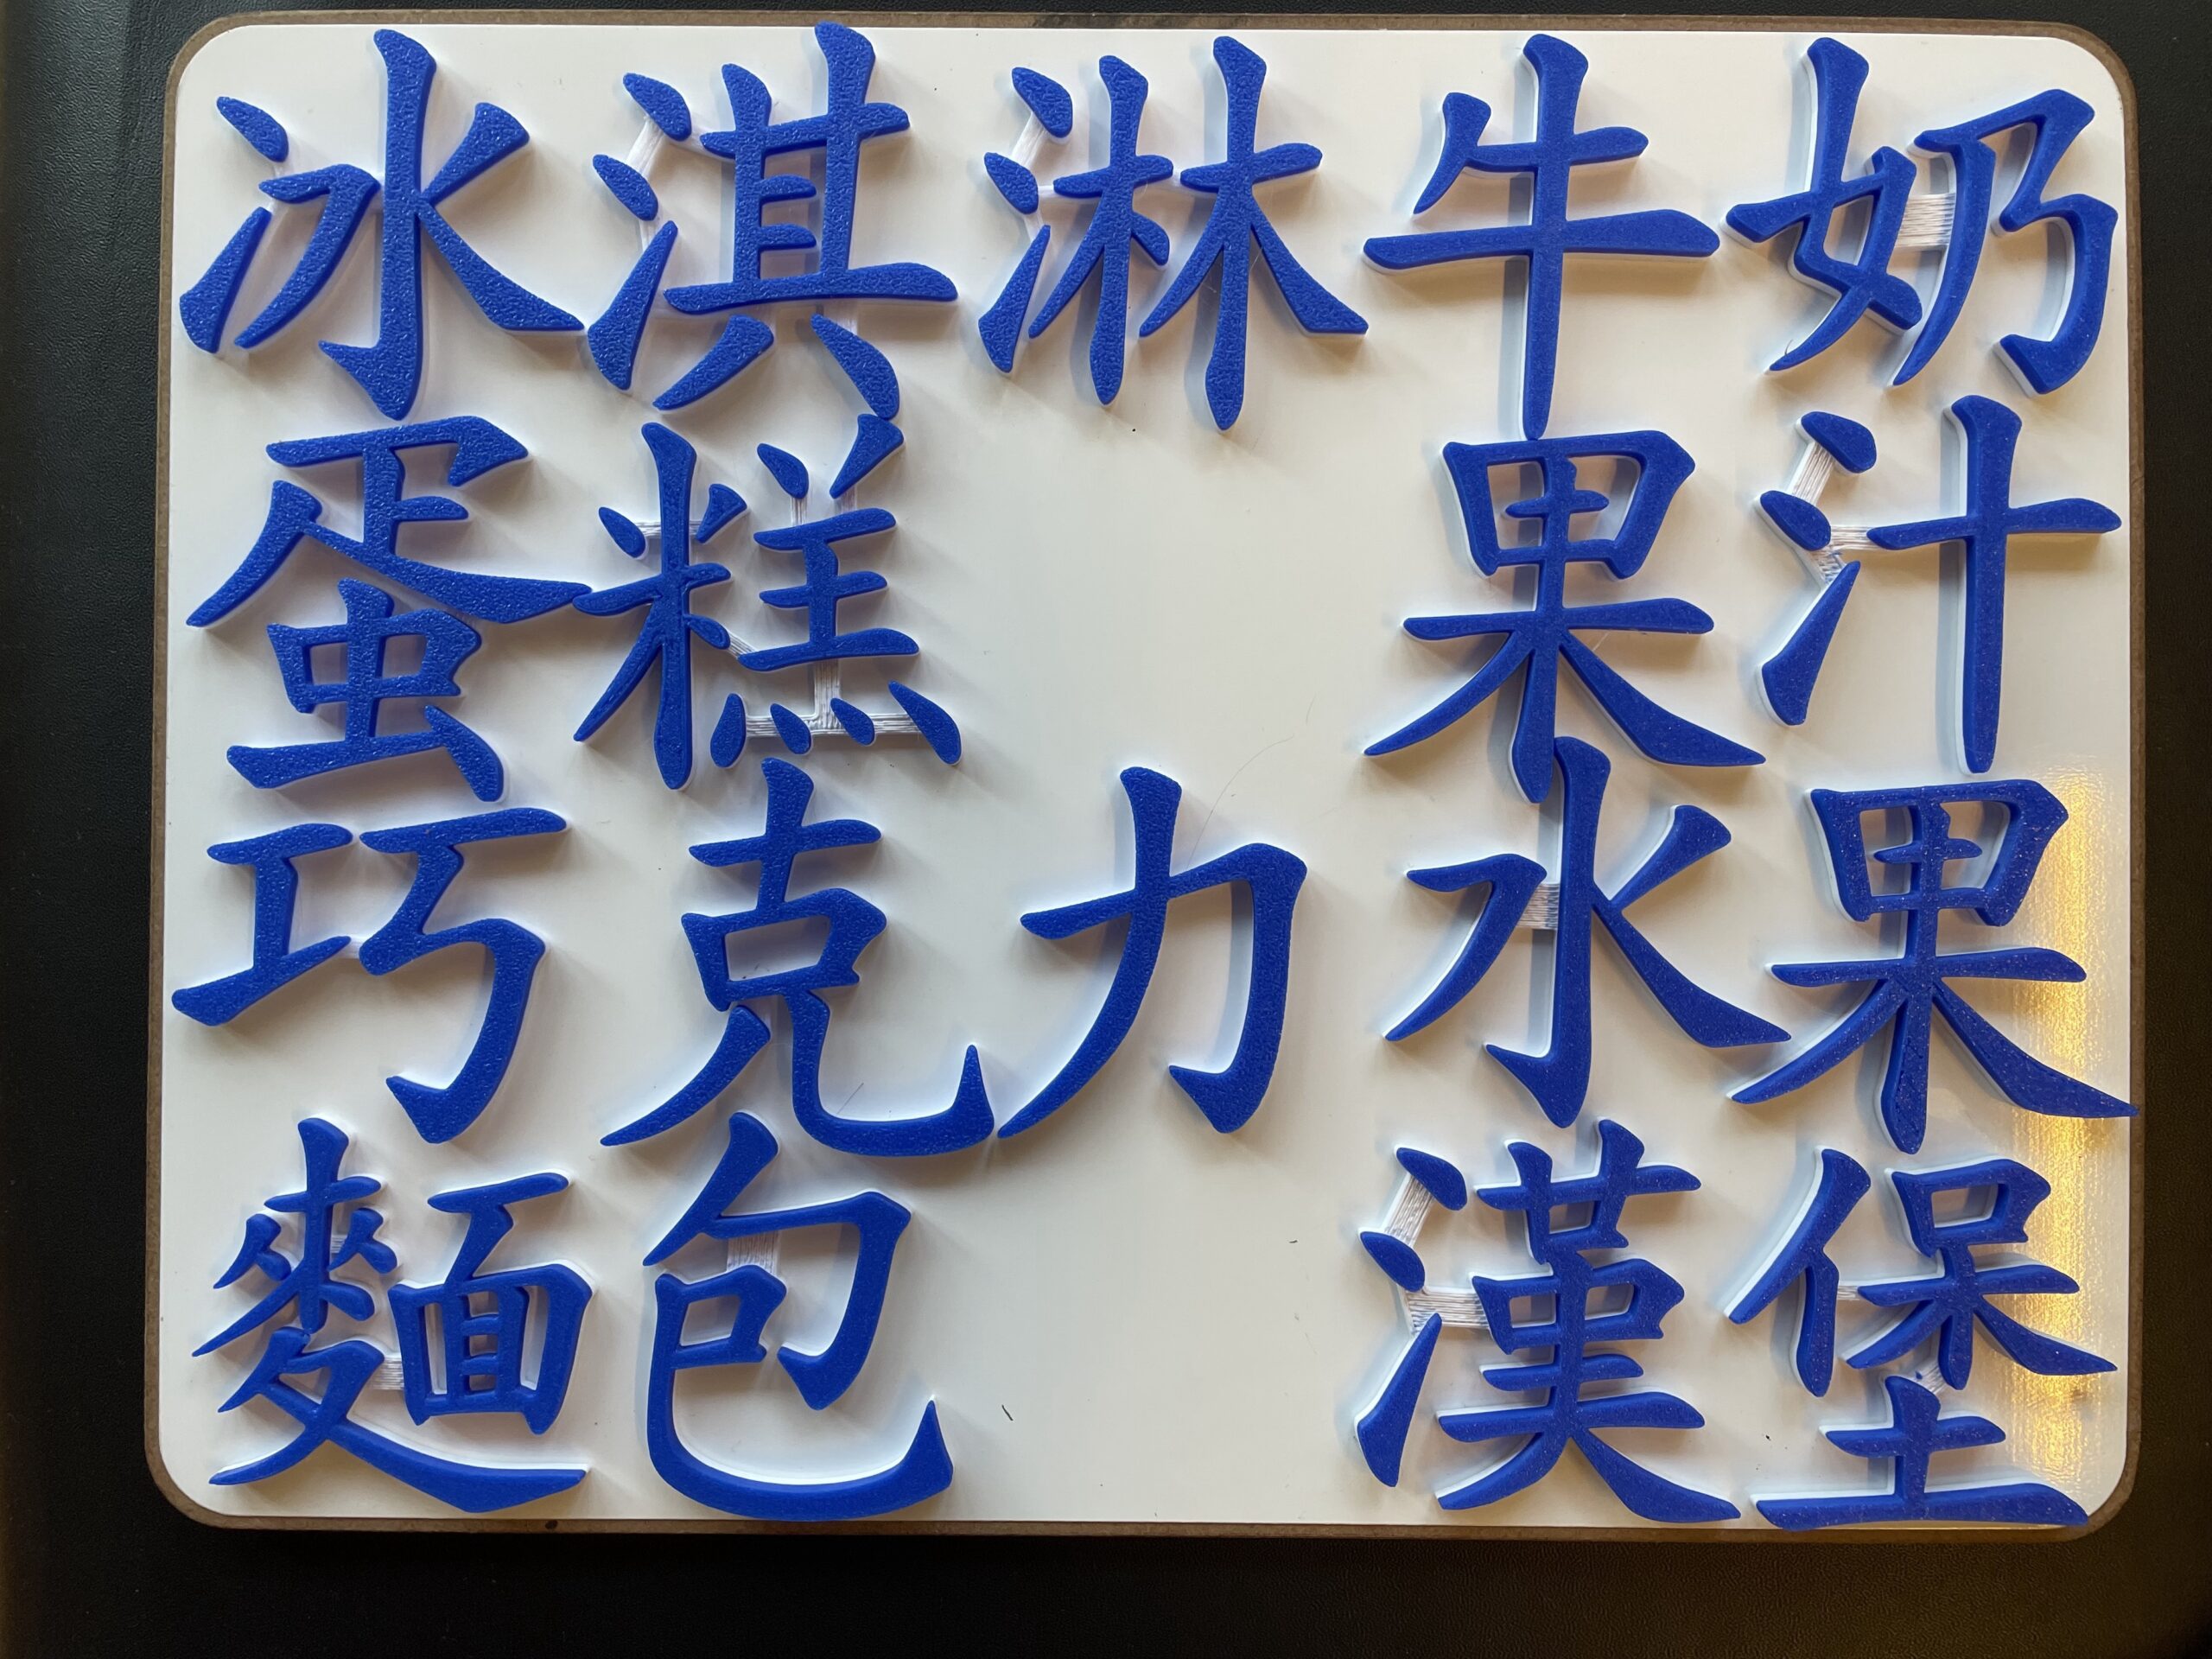 冰淇淋 牛奶
蛋糕 果汁
巧克力 水果
麵包 漢堡